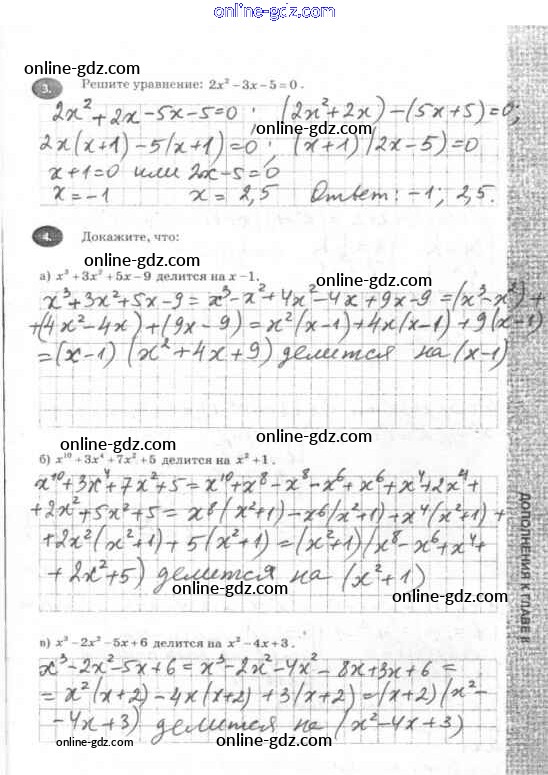 online-gdz.com
online-gdz.com
3. Решите уравнение: 2x² − 3x − 5 = 0 .
2x² + 2x − 5x − 5 = 0 ; (2x² + 2x) − (5x + 5) = 0;
2x(x+1) − 5(x+1) = 0 ; (x+1)(2x−5) = 0
x+1 = 0 или 2x−5 = 0
x = −1 x = 2,5 Ответ: −1; 2,5.
online-gdz.com
4. Докажите, что:
online-gdz.com
а) x³ + 3x² + 5x − 9 делится на x − 1.
x³+3x²+5x−9 = x³−x²+4x²−4x+9x−9 = (x³−x²)+
+(4x²−4x)+(9x−9) = x²(x−1)+4x(x−1)+9(x−1)
=(x−1)(x²+4x+9) делится на (x−1)
online-gdz.com
online-gdz.com
б) x¹⁰ + 3x⁴ + 7x² + 5 делится на x² + 1 .
x¹⁰+3x⁴+7x²+5 = x¹⁰+x⁸−x⁸−x⁶+x⁶+x⁴+2x⁴+
+2x²+5x²+5 = x⁸(x²+1)−x⁶(x²+1)+x⁴(x²+1)+
+2x²(x²+1)+5(x²+1) = (x²+1)(x⁸−x⁶+x⁴+
+2x²+5) делится на (x²+1)
online-gdz.com
online-gdz.com
в) x³ − 2x² − 5x + 6 делится на x² − 4x + 3 .
x³−2x²−5x+6 = x³−2x²−4x²−8x+3x+6 =
= x²(x+2)−4x(x+2)+3(x+2) = (x+2)(x²−
−4x+3) делится на (x²−4x+3)
online-gdz.com
online-gdz.com
ДОПОЛНЕНИЯ К ГЛАВЕ II